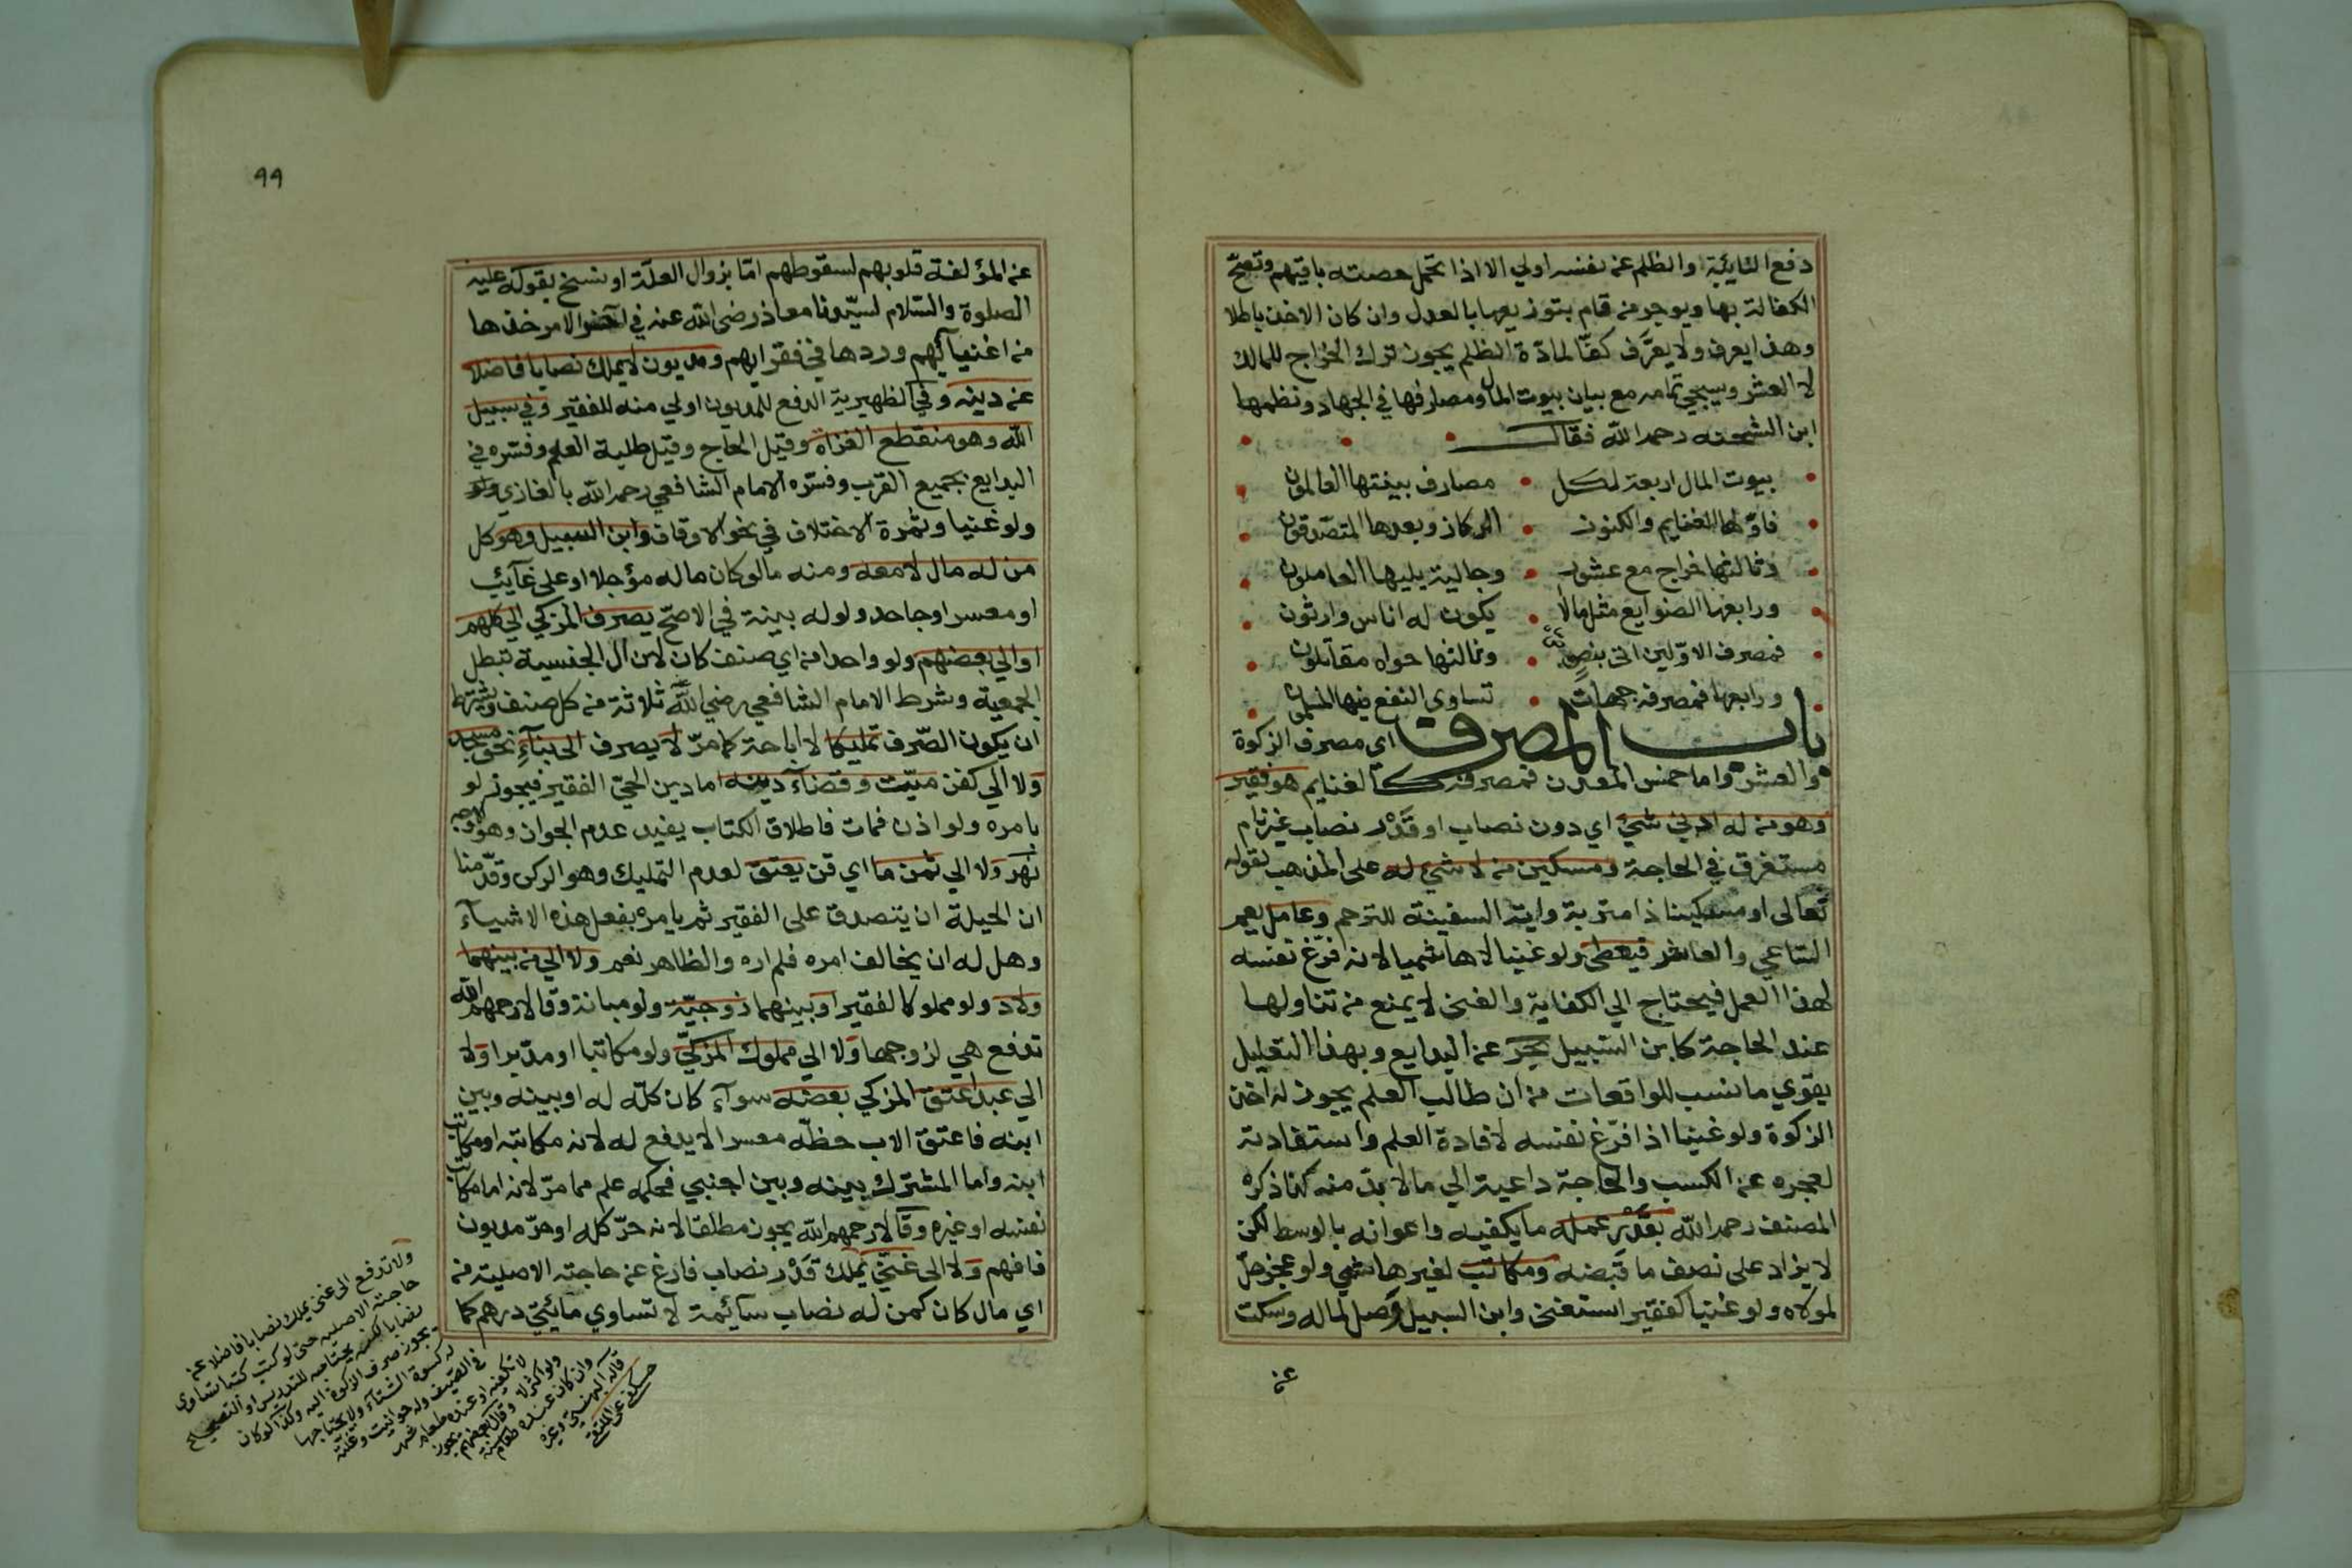 دفع النايبة والظلم عن نفسه اولي الا اذا تحمل حصته باقيهم وتصحّ
الكفالة بها ويوجر من قام بتوزيعها بالعدل وان كان الاخذ باطلا
وهذا يعرف ولا يعرَّف كفّا لمادّة الظلم يجوز ترك الخراج للمالك
لا العشر وسيجي تمامه مع بيان بيوت المال ومصارفها في الجهاد ونظمها
ابن الشحنه رحمه الله فقال
بيوت المال اربعة لكل • مصارف بينتها العالمون
فاوّلها الغنايم والكنوز • الركاز وبعدها المتصّدقون
وثالثها خراج مع عشور • وجالية يليها العاملون
ورابعها الضوايع مثل مالا • يكون له اناس وارثون
فمصرف الاوّلين اتى بنصٍ • وثالثها حواه مقاتلون
ورابعها فمصرفه جهات • تساوى النفع فيها المسلمون
باب المصرف اي مصرف الزكوة
والعشر واما خمس المعدن فمصرفه كالغنايم هو فقير
وهو من له ادني شيئ اي دون نصاب او قَدْر نصاب غير نام
مستغرق في الحاجة ومسكين من لا شيئ له على المذهب لقوله
تعالى او مسكينا ذا متربة واية السفينة للترحم وعامل يعم
الساعي والعاشر فيعطى ولو غنيا لا هاشميا لانه فرّغ نفسه
لهذا العمل فيحتاج الي الكفاية والغنى لا يمنع من تناولها
عند الحاجة كابن السبيل بحر عن البدايع وبهذا التعليل
يقوي ما نسب للواقعات من ان طالب العلم يجوز له اخذ
الزكوة ولو غنيا اذا فرّغ نفسه لافادة العلم واستفادته
لعجزه عن الكسب والحاجة داعية الي ما لا بدّ منه كذا ذكره
المصنف رحمه الله بقَدْر عمله ما يكفيه واعوانه بالوسط لكن
لا يزاد على نصف ما قبضه ومكاتب لغير هاشمي ولو عجز حلّ
لمولاه ولو غنيا كفقير استغنى وابن السبيل وصل لماله وسكت
عن
٩٩
عن المؤلفة قلوبهم لسقوطهم امّا بزوال العلّة او نسخ بقوله عليه
الصلوة والسّلام لسيّدنا معاذ رضى الله عنه في آخر الامر خذها
من اغنيآئهم وردها في فقرايهم ومديون لا يملك نصابا فاضلا
عن دينه وفي الظهيرية الدفع للمديون اولي منه للفقير وفي سبيل
الله وهو منقطع الغزاة وقيل الحاج وقيل طلبة العلم وفسّره في
البدايع بجميع القرب وفسّره الامام الشافعي رحمه الله بالغازي
ولو غنيا وثمرة الاختلاف في نحو الاوقاف وابن السبيل وهو كل
من له مال لا معه ومنه ما لو كان ماله مؤجلا او على غآئب
او معسر او جاحد ولو له بينة في الاصحّ يصرف المزكي الي كلهم
او الي بعضهم ولو واحدا من اي صنف كان لان ال الجنسية تبطل
الجمعية وشرط الامام الشافعي رضي الله عنه ثلاثة من كل صنف ويشترط
ان يكون الصّرف تمليكا لا اباحة كما مرّ لا يصرف الى بنآءِ نحو مسجد
ولا الي كفن ميّت وقضآء دينه اما دين الحيّ الفقير فيجوز لو
بامره ولو اذن فمات فاطلاق الكتاب يفيد عدم الجواز وهو الاوجه
نهر ولا الي ثمن ما اي قن يعتق لعدم التمليك وهو الركن وقدّمنا
ان الحيلة ان يتصدق على الفقير ثم يامره بفعل هذه الاشيآء
وهل له ان يخالف امره فلم اره والظاهر نعم ولا الي من بينهما
ولاد ولو مملوكا لفقير او بينهما زوجيّة ولو مبانة وقالا رحمهم الله
تدفع هي لزوجها ولا الي مملوك المزكّي ولو مكاتبا او مدّبرا ولا
الي عبد اعتق المزكي بعضه سوآء كان كلّه له او بينه وبين
ابنه فاعتق الاب حظّه معسرا لا يدفع له لانه مكاتبه او مكاتب
ابنه واما المشترك بينه وبين اجنبي فحكمه علم مما مرّ لانه اما مكاتب
نفسه او غيره وقالا رحمهم الله يجوز مطلقا لانه حرّ كله او حرّ مديون
فافهم ولا الى غنيّ يملك قَدْر نصاب فارغ عن حاجته الاصلية من
اي مال كان كمن له نصاب سآئمة لا تساوي مائتي درهم كما
ولا تدفع الى غنى يملك نصابا فاضلا عن
حاجته الاصلية حتى لو كتب كتبا تساوي
نصابا لكنه يحتاجه للتدريس او التصحيح
يجوز صرف الزكوة اليه وكذا لو كان
له كسوة الشتآء ولا يحتاجها
في الصيف وله حوانيت وغلة
لا تكفيه او عنده طعام شهر
ولو اكثر لا وقال بعضهم يجوز
وان كان عنده طعام سنة
قاله البهنسي وغيره
حصكفى على الملتقى